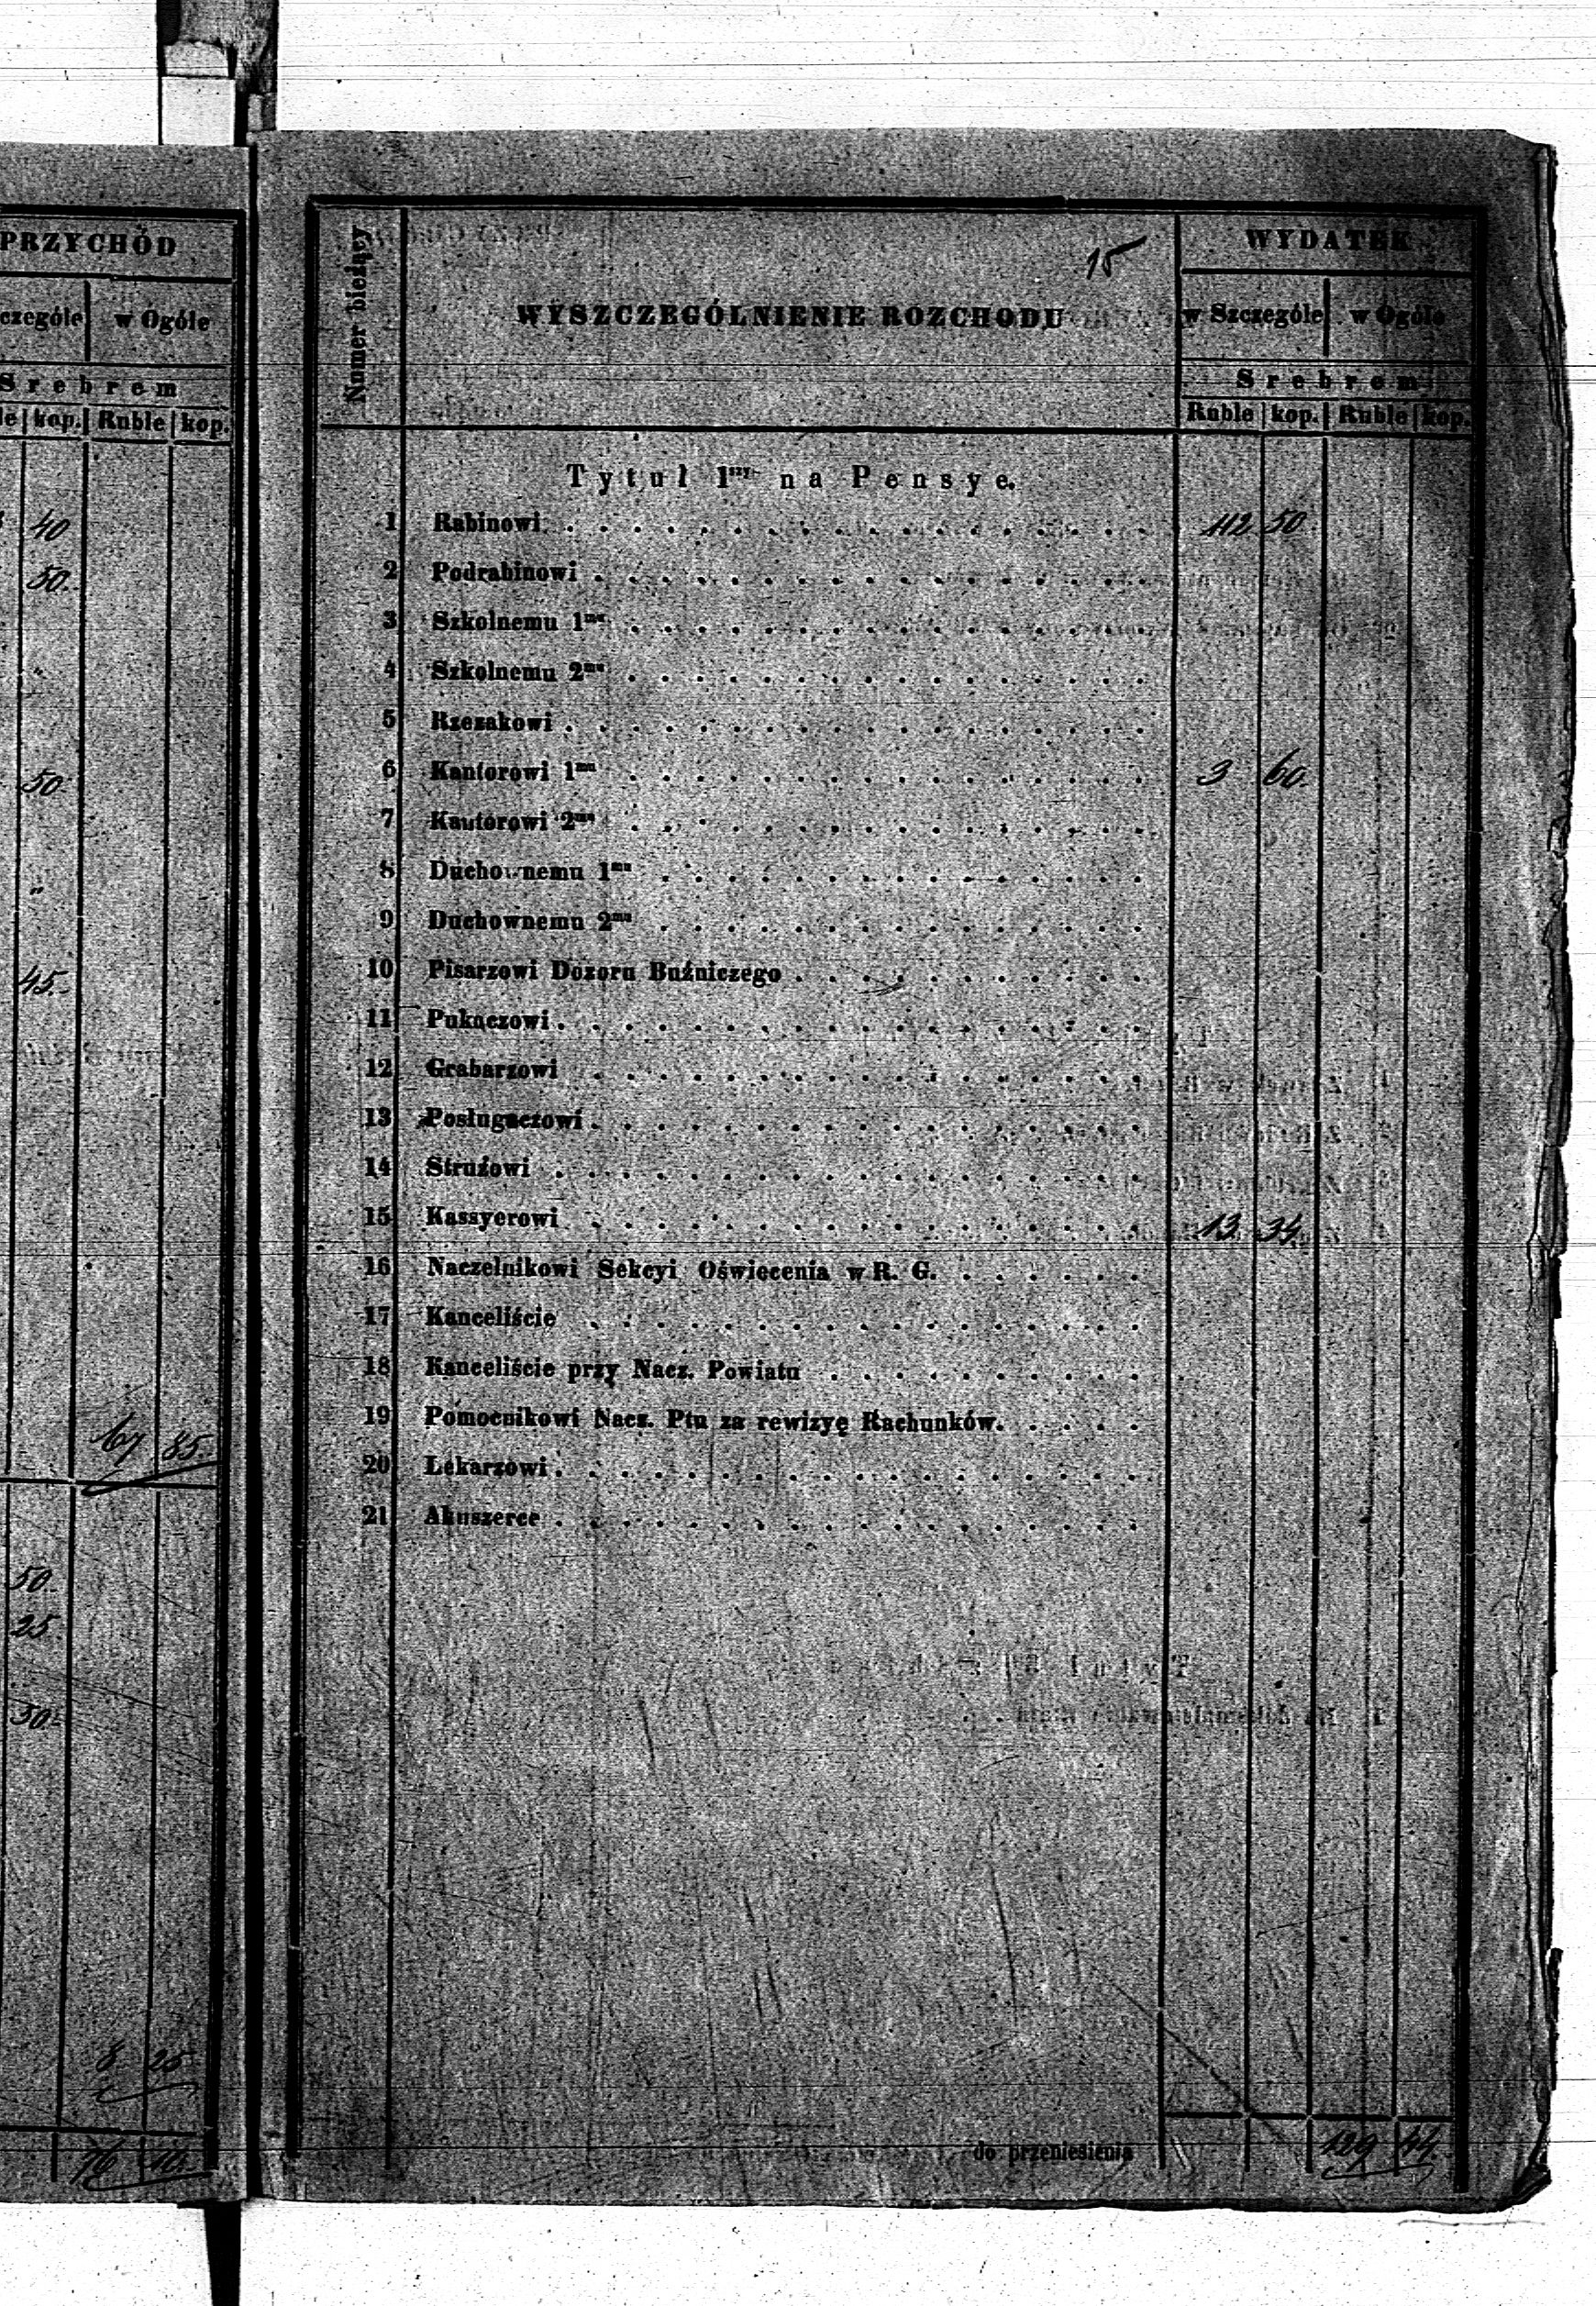 PRZYCHÓD
w Ogóle
Srebrem
kop. Ruble kop.
40
50.
"
50
"
45.
67 85.
50.
25.
50.
8 25
76 10.
15
Numer bieżący
WYSZCZEGÓLNIENIE ROZCHODU
WYDATEK
w Szczególe w Ogóle
Srebrem
Ruble kop. Ruble kop.
Tytuł 1szy na Pensye.
1 Rabinowi 112 50
2 Podrabinowi
3 Szkolnemu 1mu
4 Szkolnemu 2mu
5 Rzezakowi
6 Kantorowi 1mu 3 60.
7 Kantorowi 2mu
8 Duchownemu 1mu
9 Duchownemu 2mu
10 Pisarzowi Dozoru Bużniczego
11 Pukaczowi
12 Grabarzowi
13 Posługaczowi
14 Strużowi
15 Kassyerowi 13 34
16 Naczelnikowi Sekcyi Oświecenia w R. G.
17 Kanceliście
18 Kanceliście przy Nacz. Powiatu
19 Pomocnikowi Nacz. Ptu za rewizyę Rachunków.
20 Lekarzowi
21 Akuszerce
do przeniesienia 129 44.